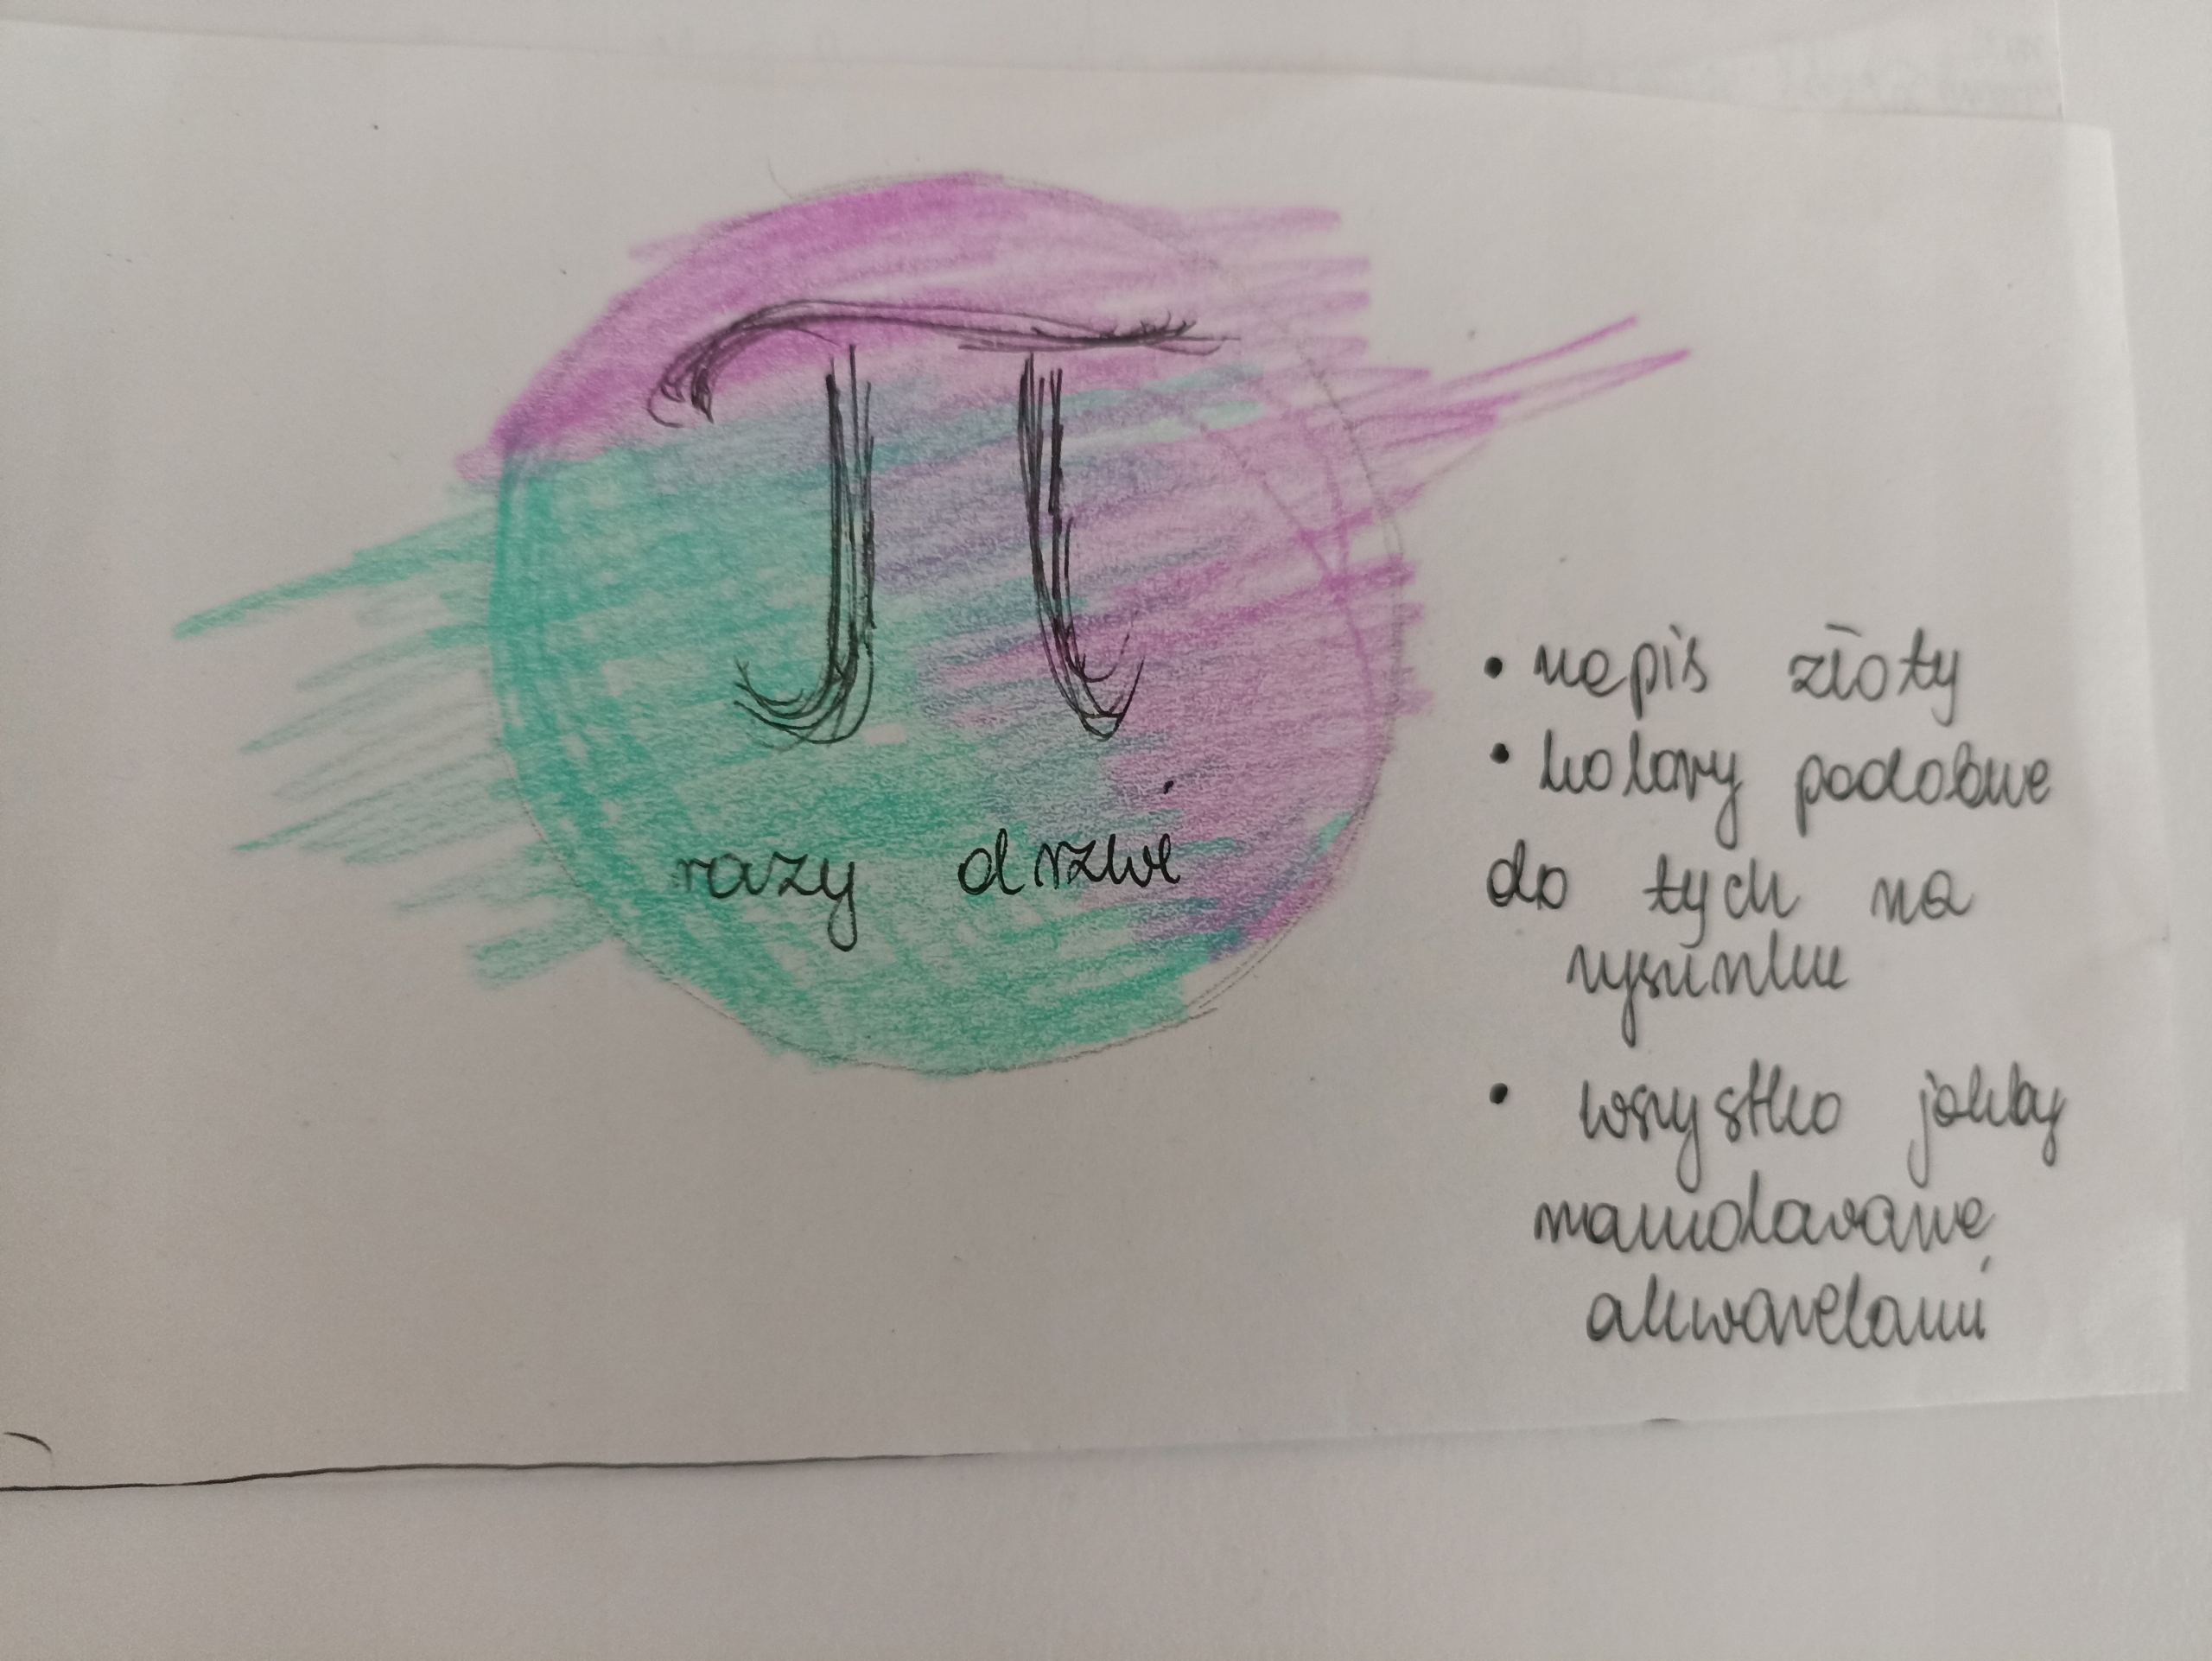 π
razy drzwi
• napis złoty
• kolory podobne
do tych na
rysunku
• wszystko jakby
namalowane
akwarelami